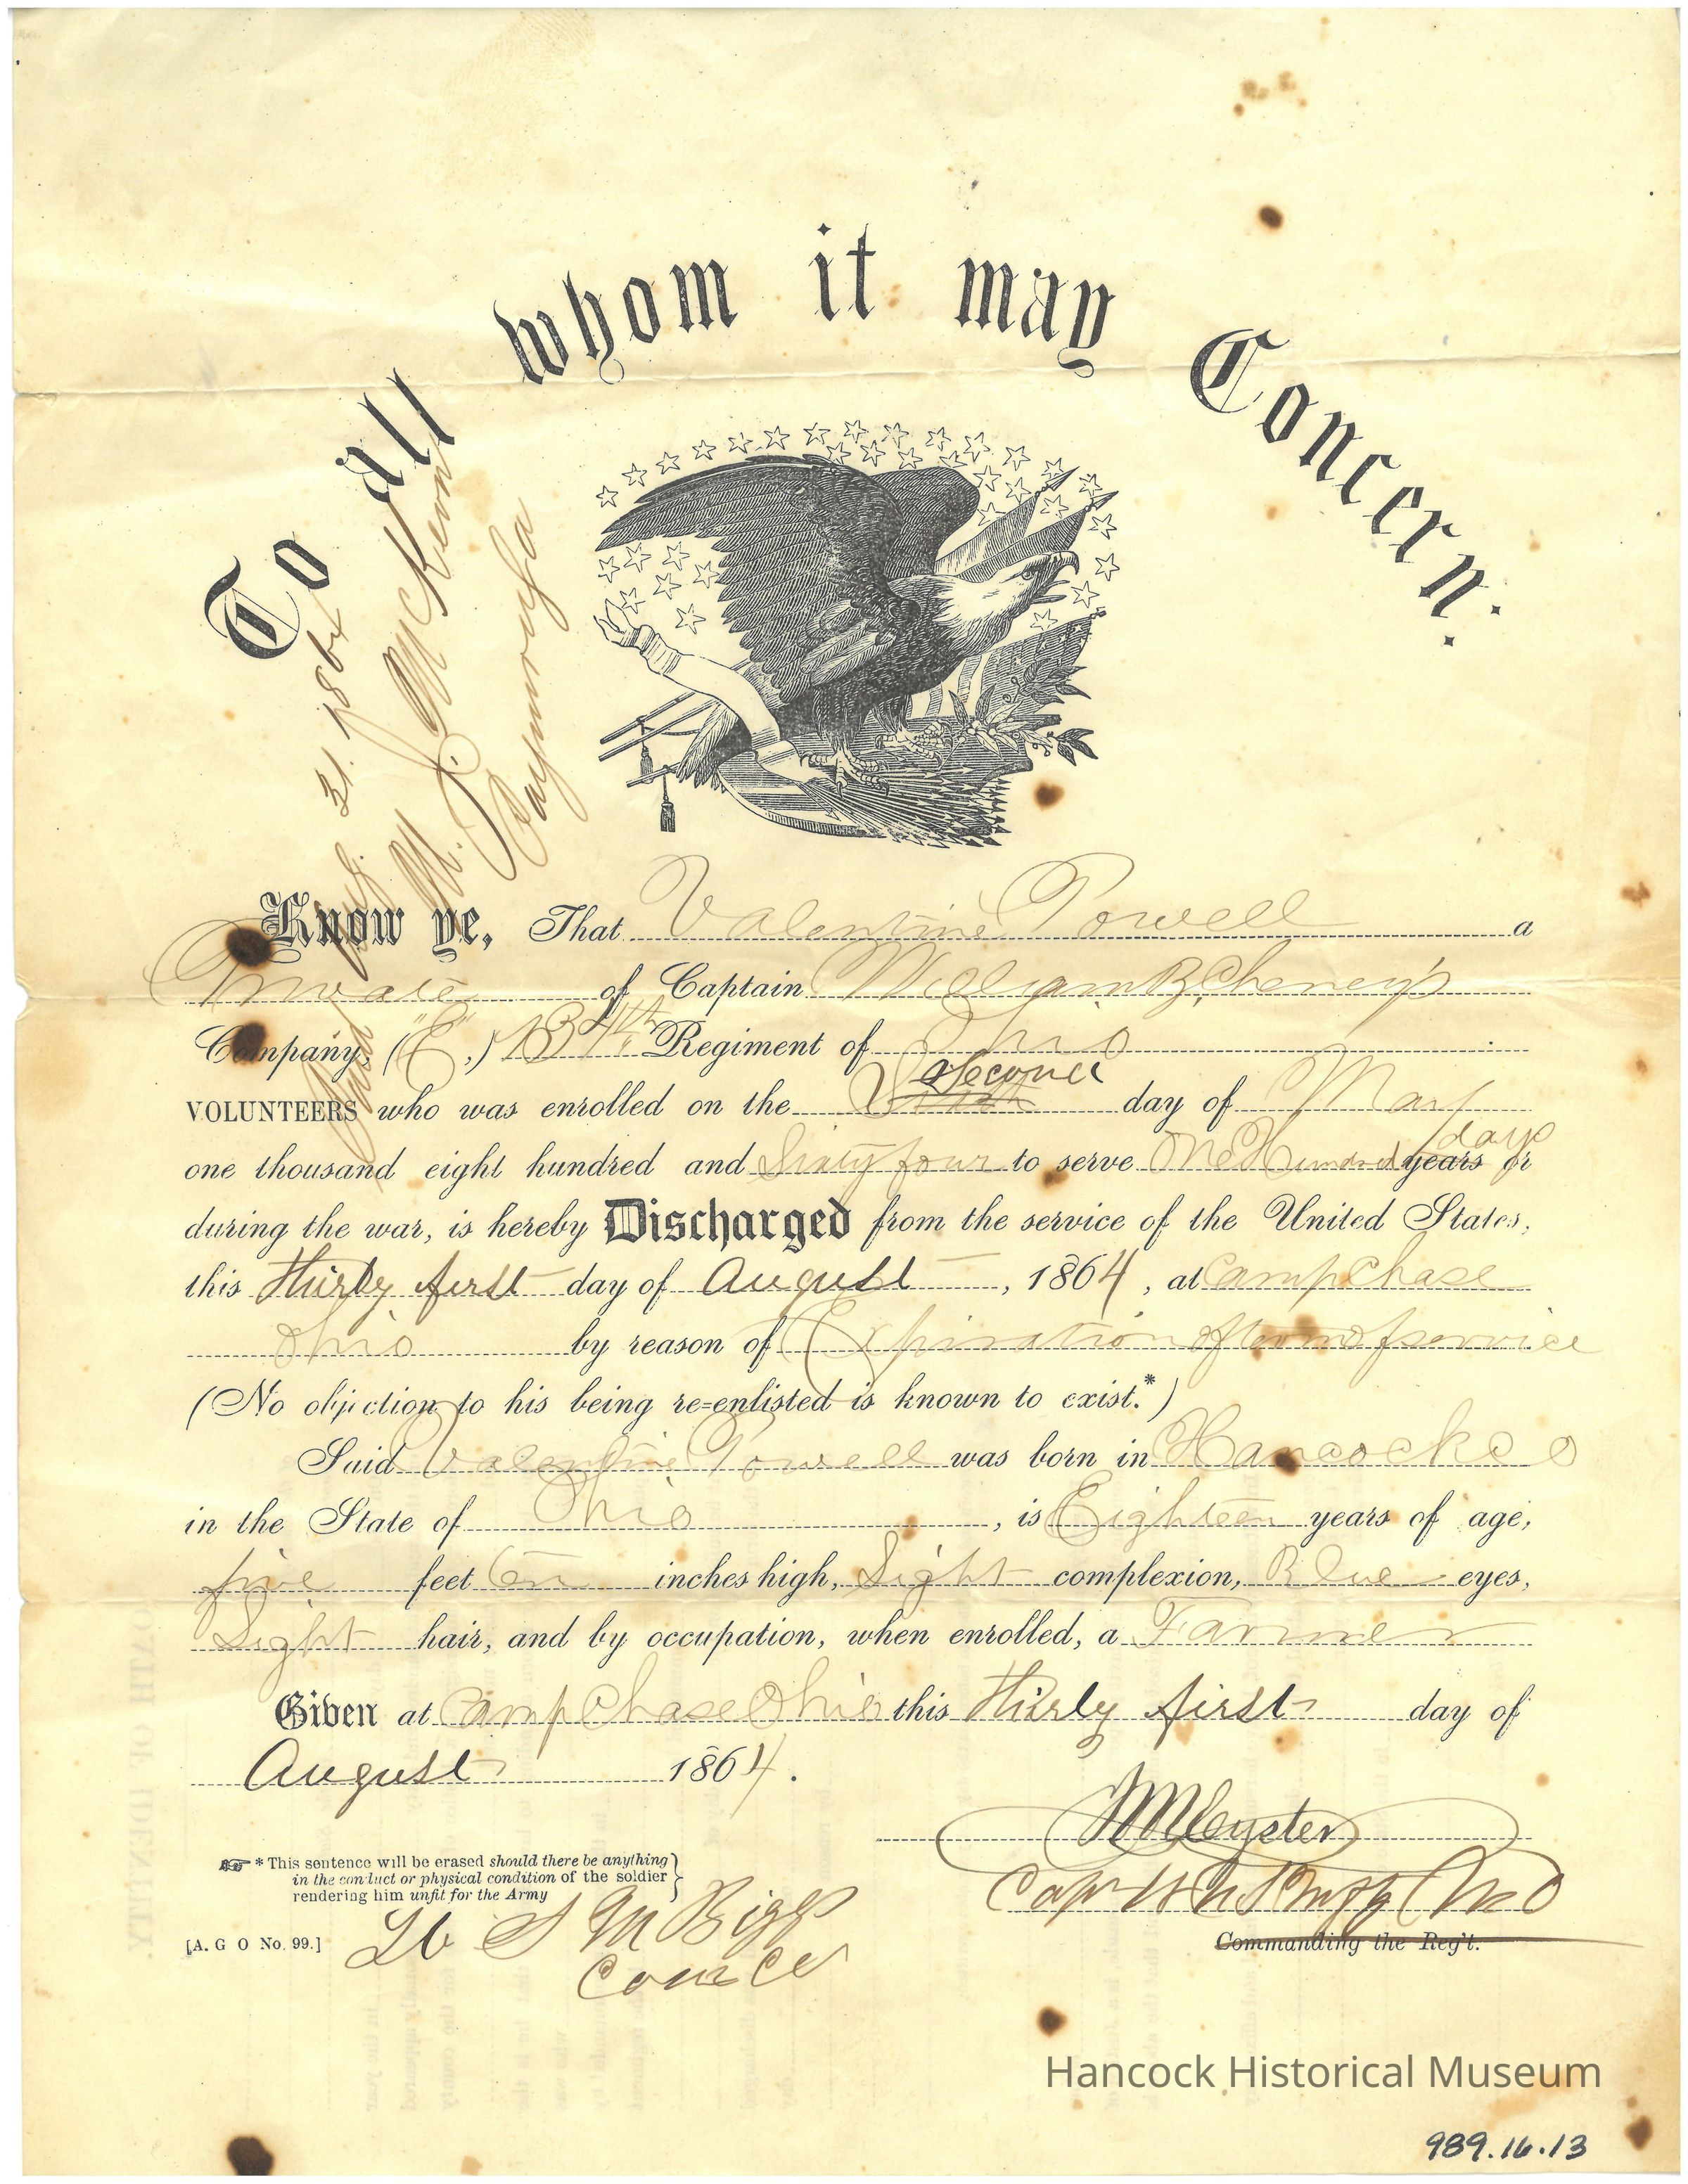 To all whom it may Concern:
Paid Aug. 31. 1864
M. L. McKenna
Paymaster
Know ye, That Valentine Powell a
Private of Captain William B Cheney's
Company, ("E",) 134th Regiment of Ohio
Second
VOLUNTEERS who was enrolled on the day of May
days
one thousand eight hundred and Sixty four to serve One Hundred years or
during the war, is hereby Discharged from the service of the United States,
this Thirty first day of August, 1864, at Camp Chase
Ohio by reason of Expiration of term of service
(No objection to his being re-enlisted is known to exist.*)
Said Valentine Powell was born in Hancock Co
in the State of Ohio, is Eighteen years of age,
five feet Ten inches high, Light complexion, Blue eyes,
Light hair, and by occupation, when enrolled, a Farmer
Given at Camp Chase Ohio this Thirty first day of
August 1864.
Eyster
* This sentence will be erased should there be anything
in the conduct or physical condition of the soldier
rendering him unfit for the Army
Capt
Commanding the Reg't.
[A. G O No. 99.]
Lt S M Biggs
Com Co
OATH OF IDENTITY.
Hancock Historical Museum
989.16.13